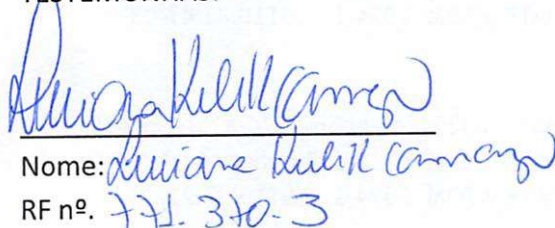 Luciana Kulik Camargo
Nome: Luciana Kulik Camargo
RF nº. 771.370-3